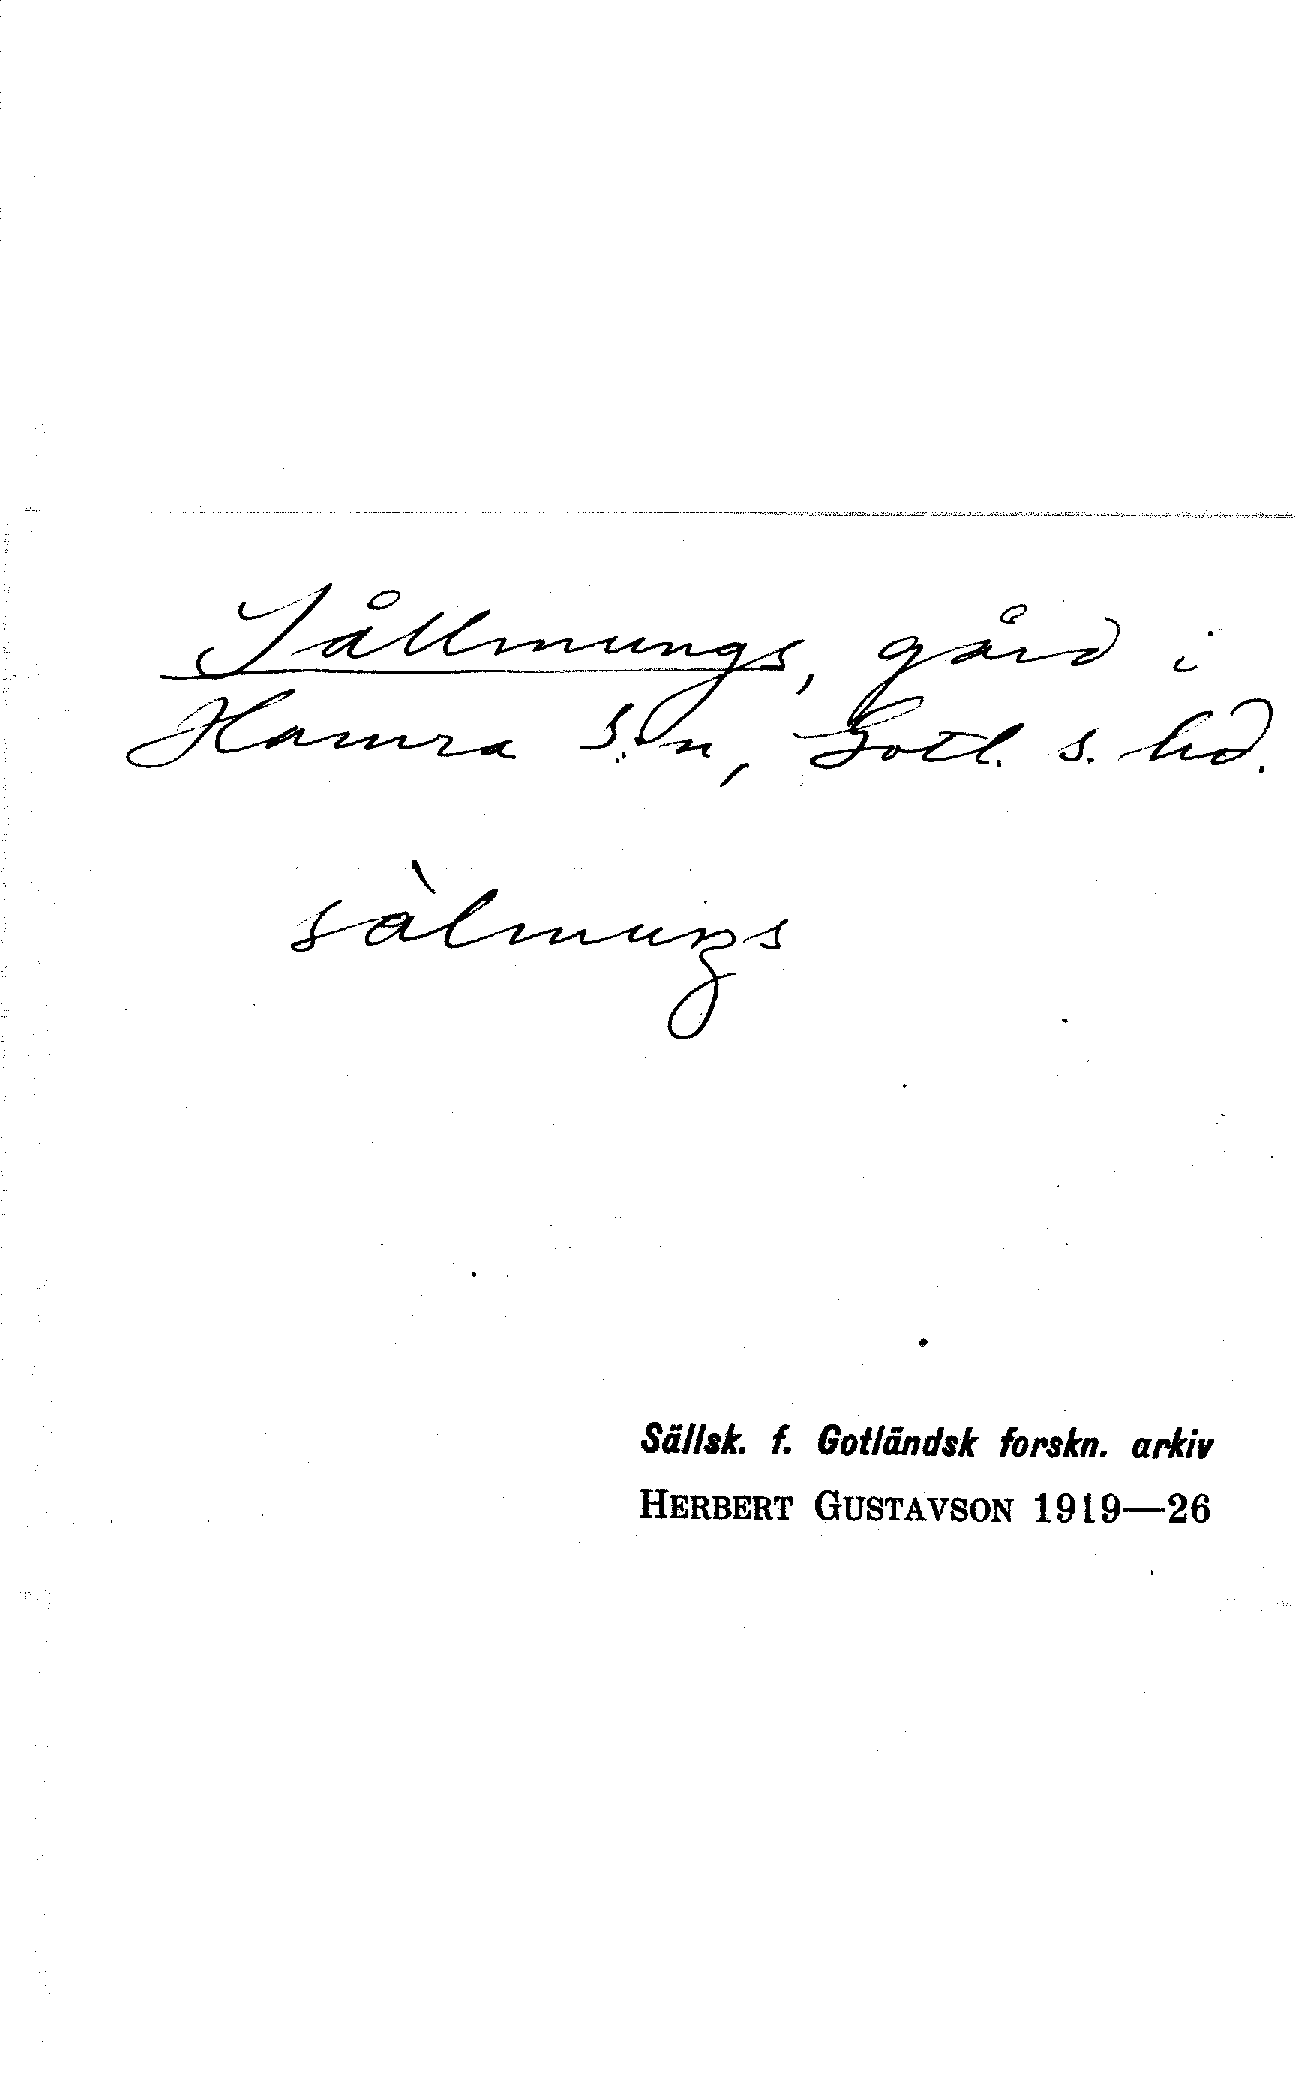 Sållmungs, gård i
Hamra s:n, Gotl. s. hd.
sàlmuŋs
Sällsk. f. Gotländsk forskn. arkiv
HERBERT GUSTAVSON 1919—26